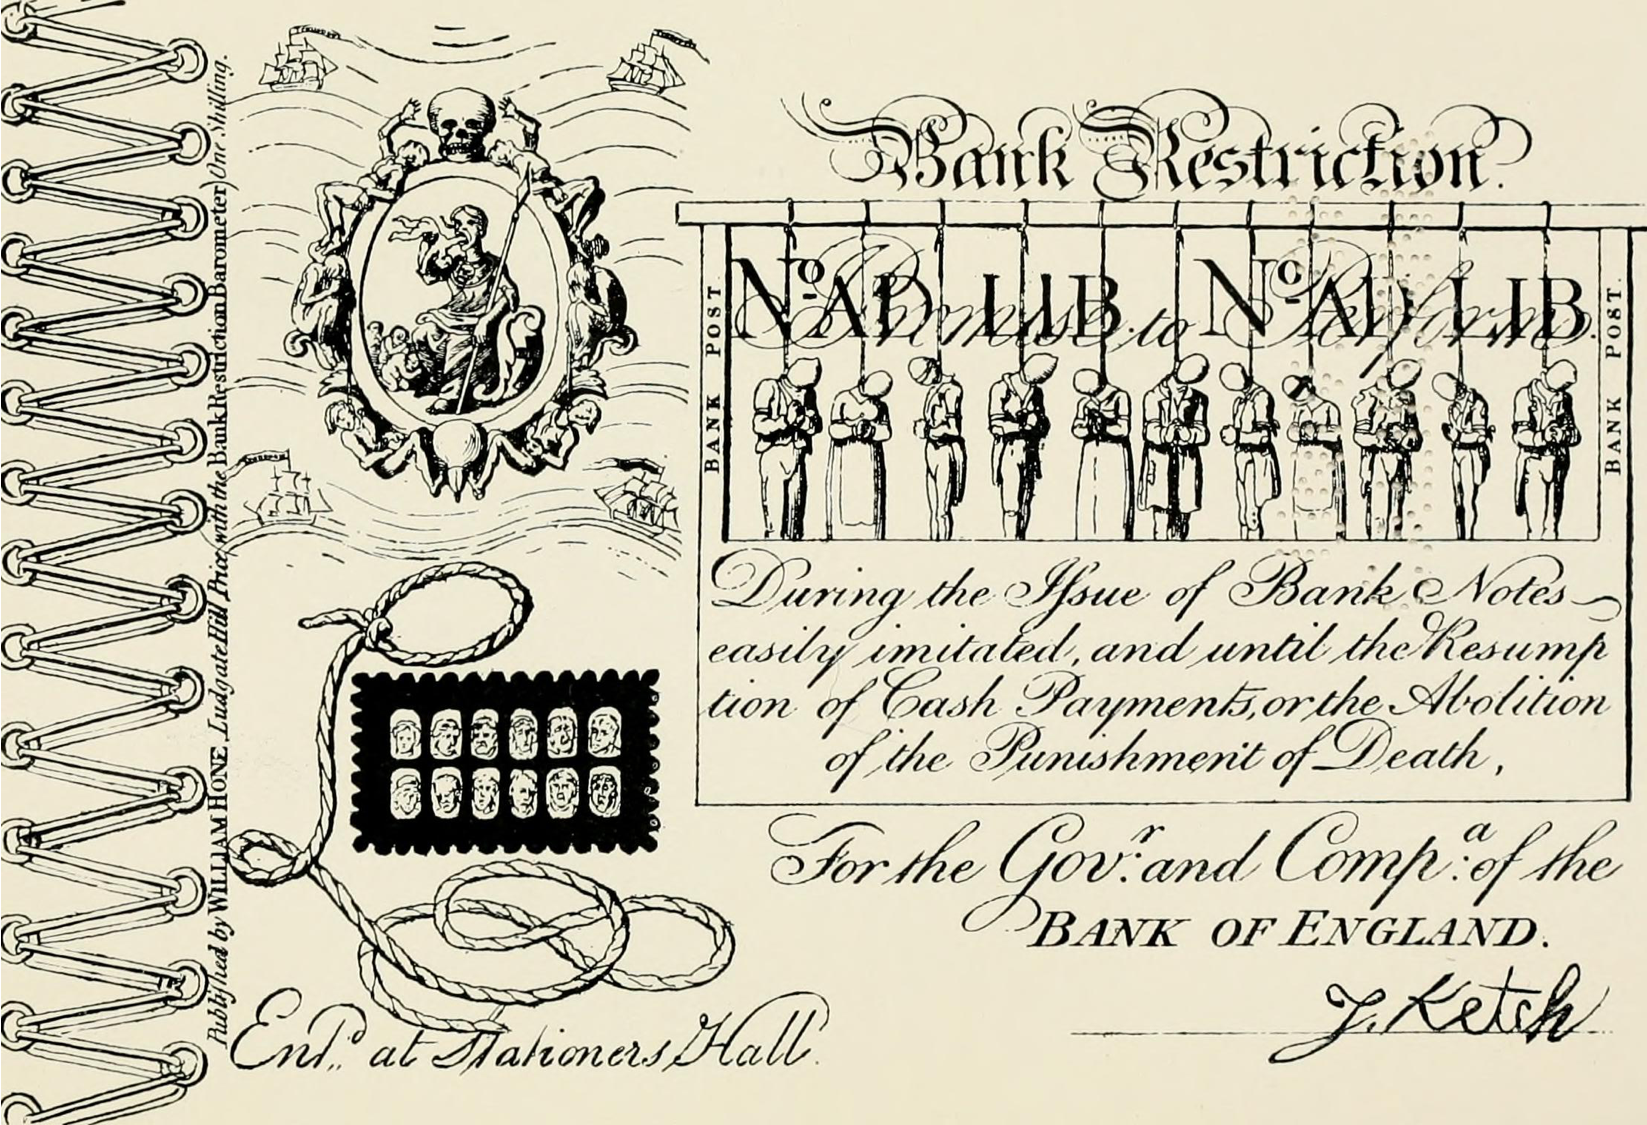 Publiſhed by WILLIAM HONE Ludgate Hill Price with the Bank Restriction Barometer) One Shilling.
Bank Restriction.
Nº. AD LIB. Nº. AD LIB.
I Promise to Perform
BANK POST
BANK POST.
During the Iſsue of Bank Notes
easily imitated, and until the Resump
tion of Cash Payments, or the Abolition
of the Punishment of Death,
For the Govʳ. and Compᵃ. of the
BANK OF ENGLAND.
J. Ketch
Entᵈ. at Stationers Hall.